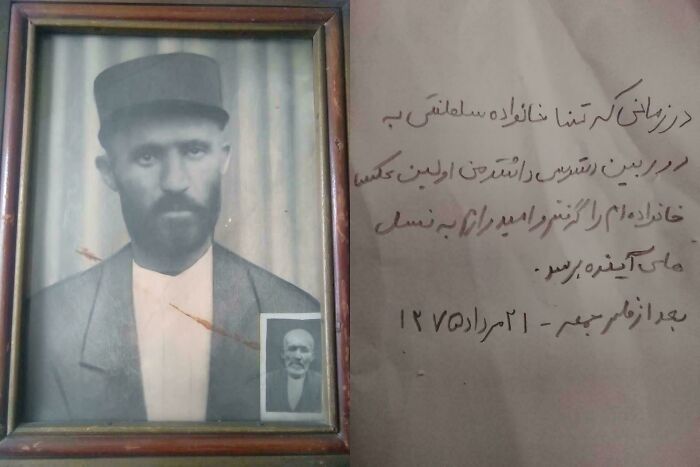 در زمانی که تنها خانواده سلطنتی به
دوربین دسترس داشتند من اولین عکس
خانواده ام را گرفتم و امیدوارم به نسل
های آینده برسد.
بعد از ظهر جمعه - ۲۱ مرداد ۱۲۷۵